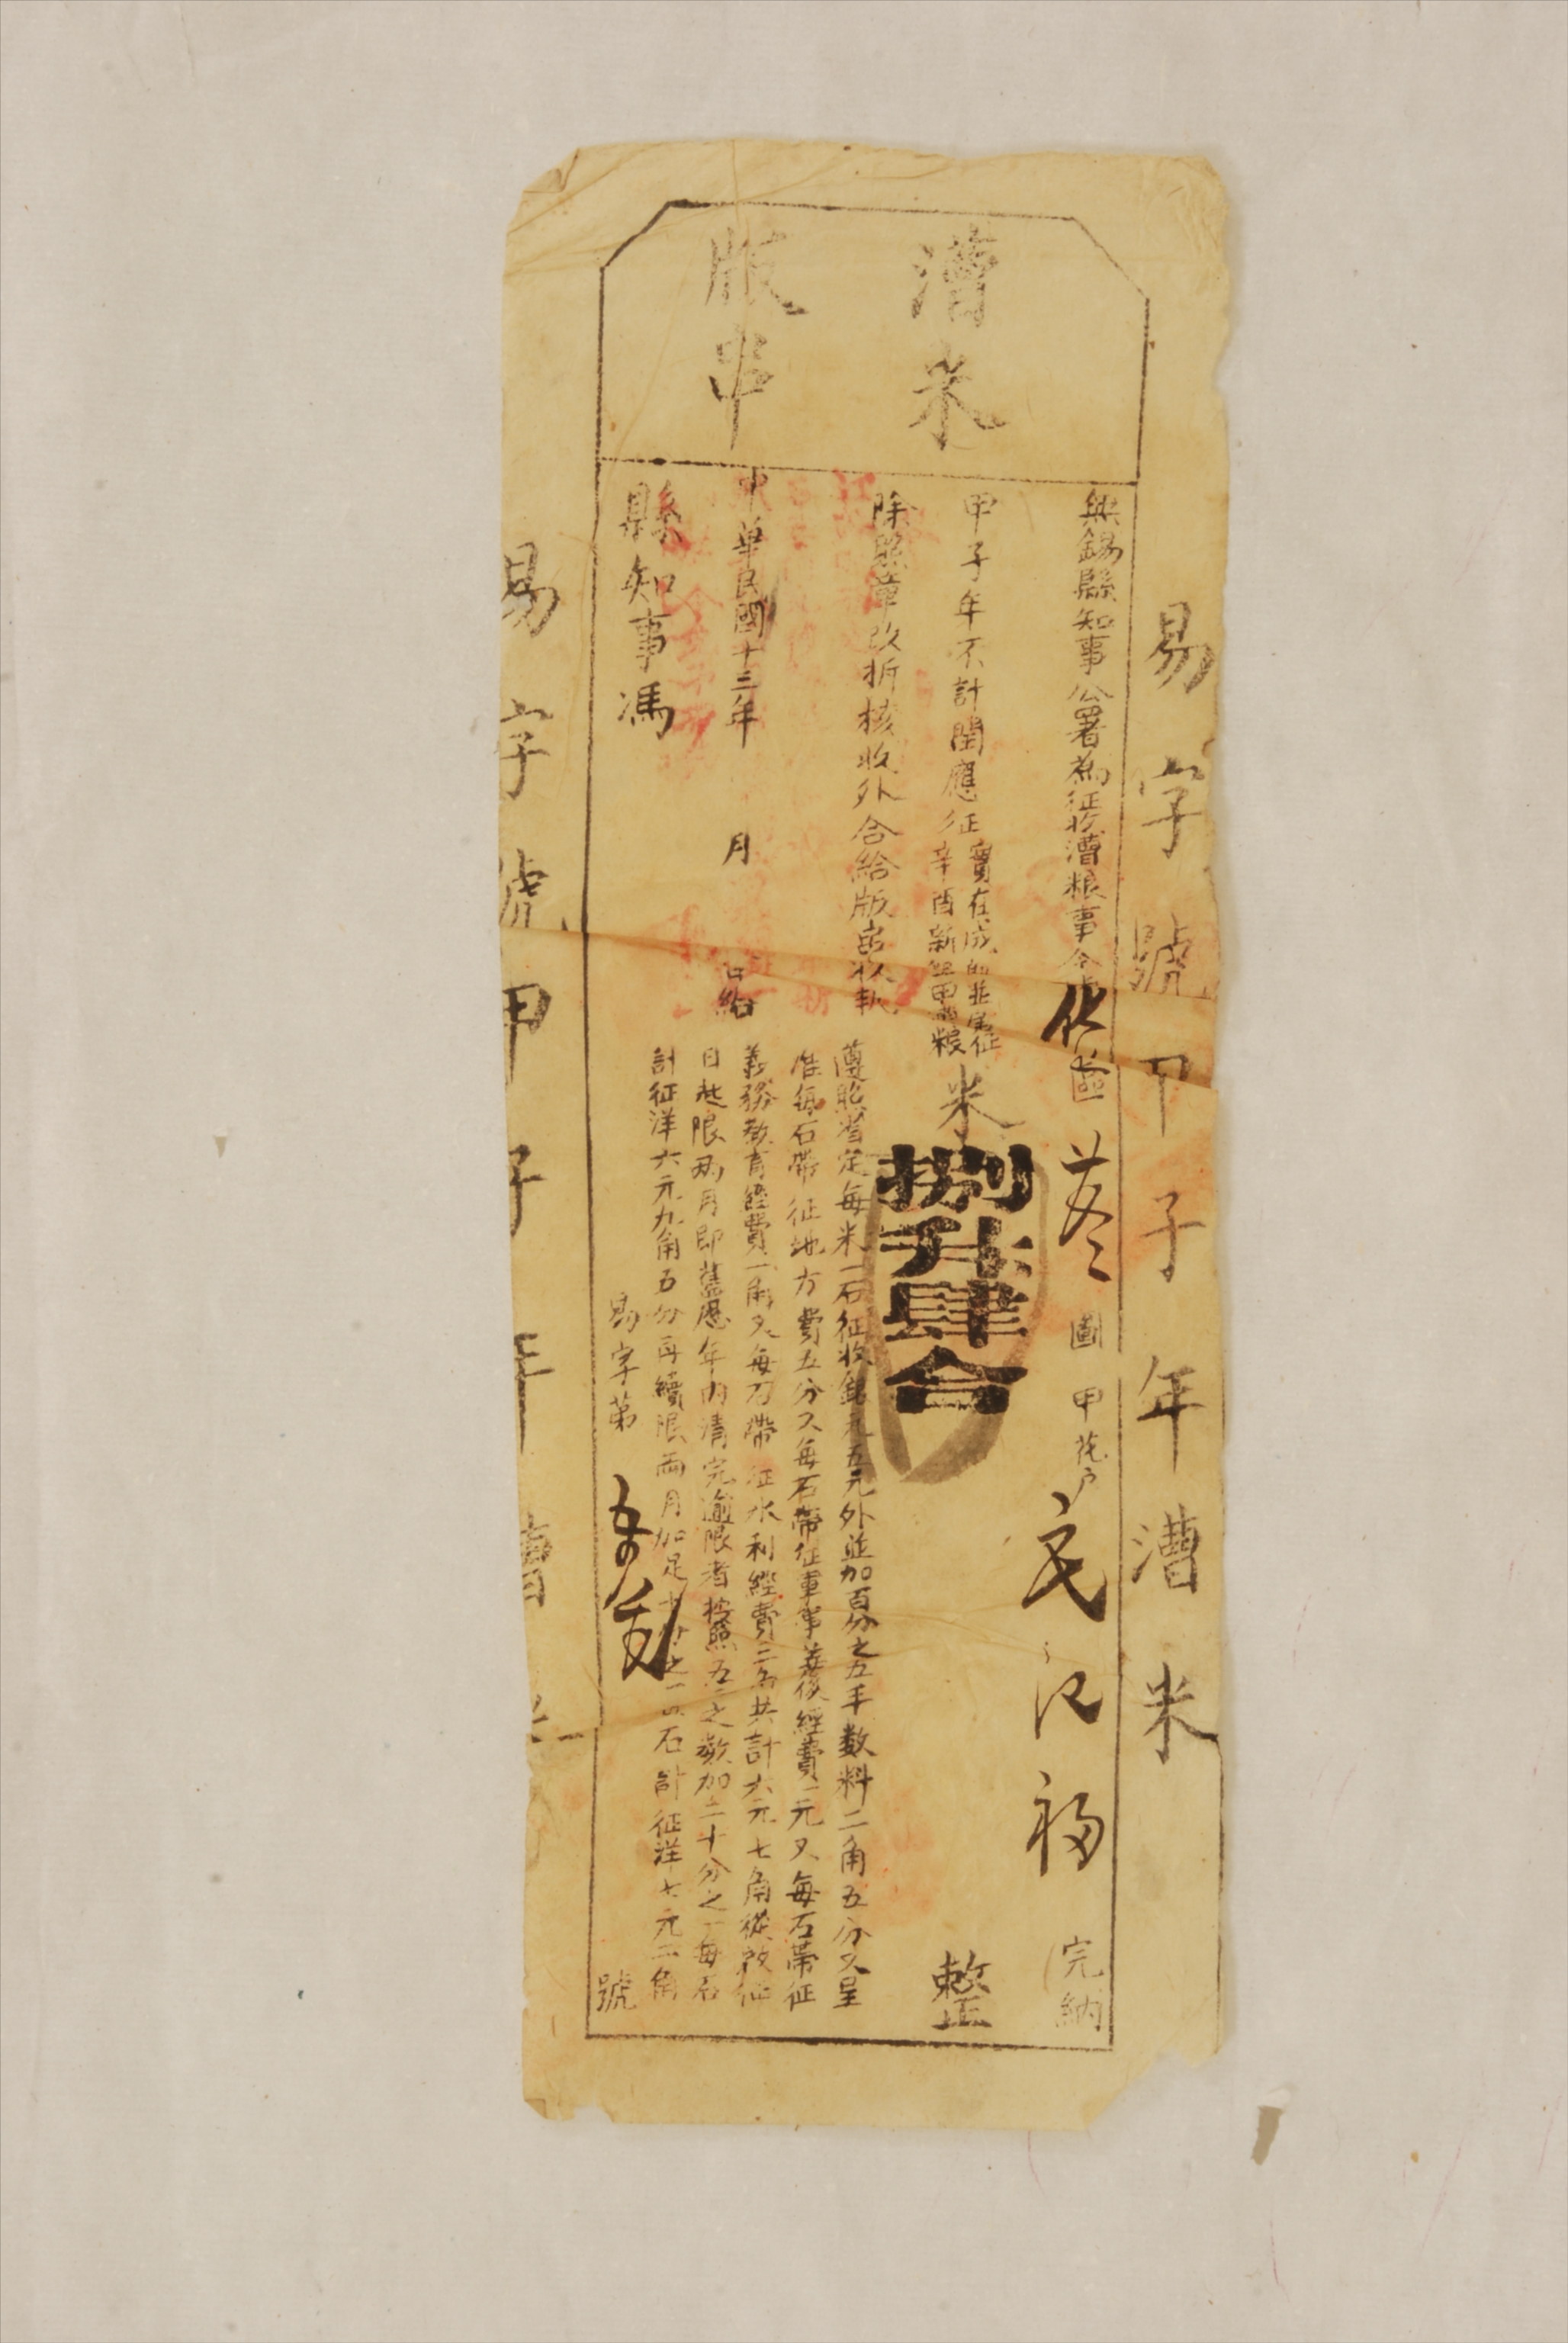 易字號甲子年漕米
漕米
版串
無錫縣知事公署為征收漕粮事今據
區 圖 甲花戶 民 江福 完納
甲子年不計閏應征實在成熟並帶征
辛酉新墾甲 粮
米捌升肆合 整
除照章改折核收外合給版串收執
遵照省定每米一石征收銀元五元外並加百分之五手數料二角五分又呈
准每石帶征地方費五分又每石帶征軍事善後經費一元又每石帶征
義務教育經費一角又每石帶征水利經費三角共計六元七角從啟征
日起限兩月即舊歷年內清完逾限者按照五元之數加二十分之一每石
計征洋六元九角五分再續限兩月加足十分之一每石計征洋七元二角
中華民國十三年 月 日給
縣知事馮
易字第 號
易字號甲子年漕米